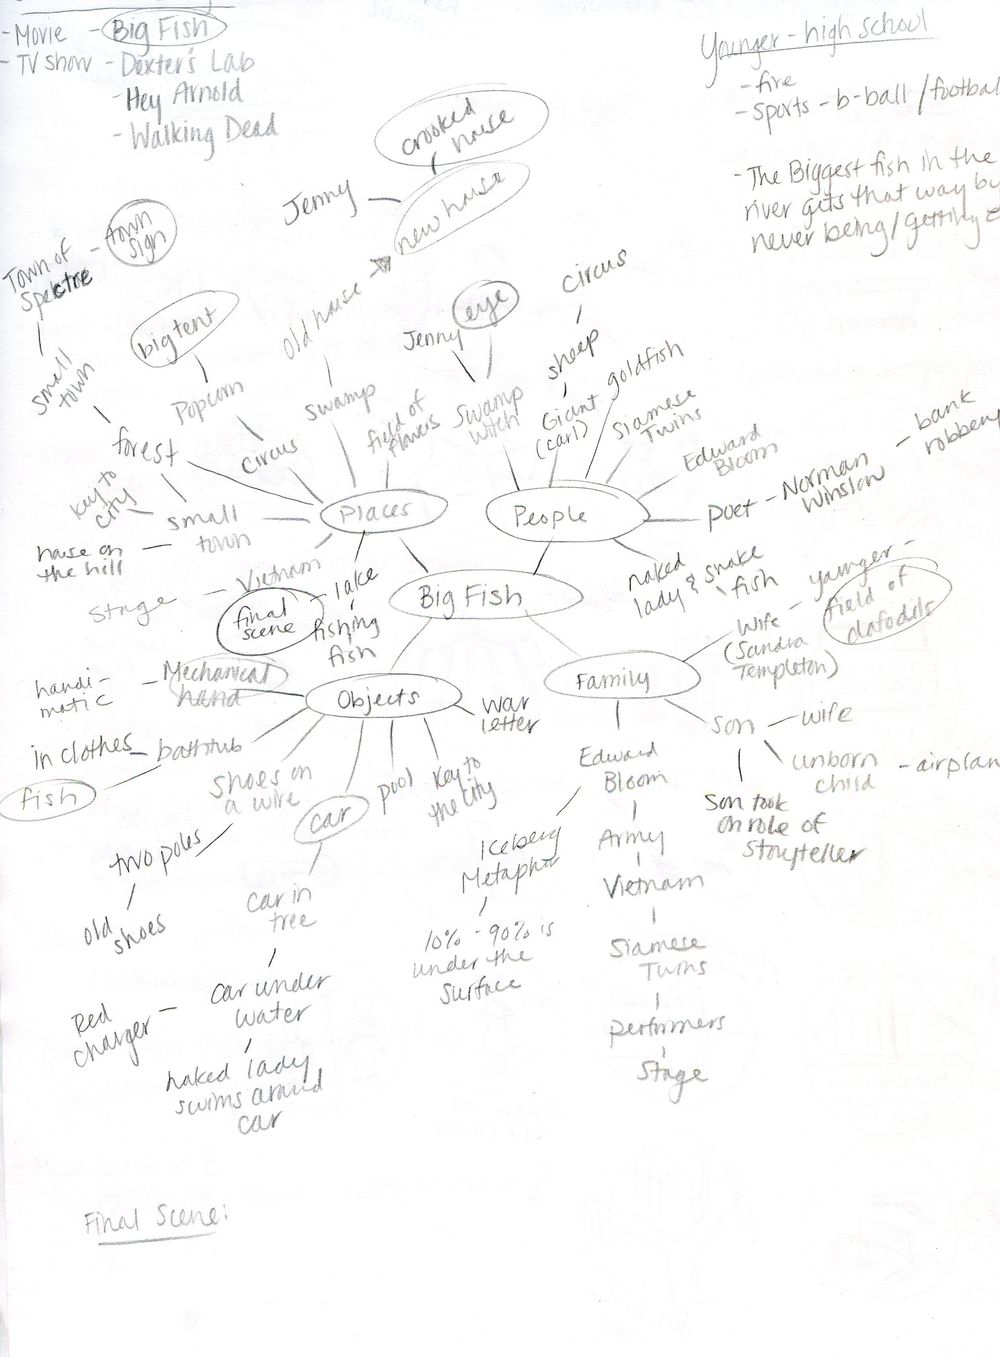 - Movie - Big Fish
- TV Show - Dexter's Lab
- Hey Arnold
- Walking Dead
Younger - high school
- fire
- sports - b-ball / football
- The Biggest fish in the
river gets that way by
never being / getting
crooked
house
Jenny
new house
Town of
Spectre
- town
sign
small
town
big tent
Popcorn
circus
old house
swamp
field of
flowers
Jenny
eye
swamp
witch
circus
sheep
Giant
(carl)
goldfish
Siamese
Twins
Edward
Bloom
poet - Norman
Winslow
- bank
robbery
naked
lady & snake
fish
forest
key to
city
small
town
house on
the hill
Stage - Vietnam
final
scene
- lake
fishing
fish
Places
People
Big Fish
Objects
Family
handi-
matic
- Mechanical
hand
in clothes - bathtub
fish
shoes on
a wire
two poles
old
shoes
car
car in
tree
car under
water
Red
charger -
naked lady
swims around
car
pool
key to
the city
war
letter
wife
(Sandra
Templeton)
- younger -
field of
dafodils
son - wife
unborn
child
- airplan
Son took
on role of
Storyteller
Edward
Bloom
Iceberg
Metaphor
10% - 90% is
under the
surface
Army
Vietnam
Siamese
Twins
performers
Stage
Final Scene: